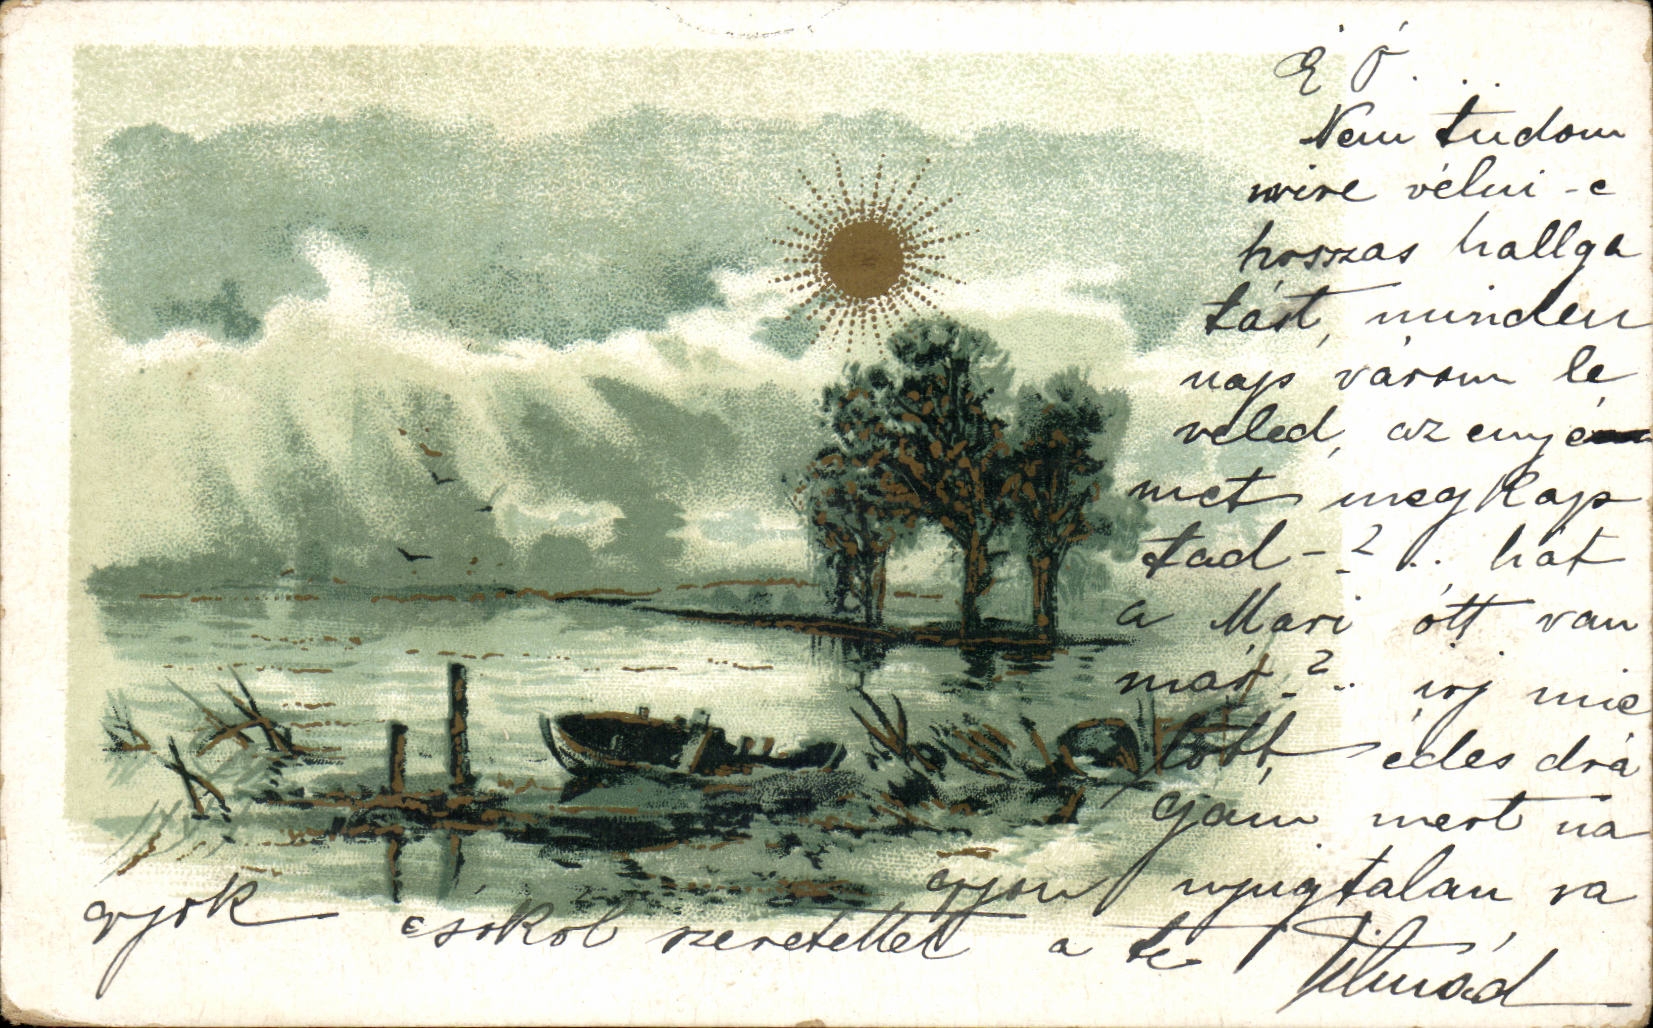 É Ó...
Nem tudom
mire vélni -e
hosszas hallga
tást, minden
nap várom le
veled, az enyé
met megkap
tad - ? .. hát
a Mari ótt van
már, ? .. irj mie
lőtt, édes drá
gám mert na
gyon nyugtalan va
gyok csókol szeretettel a te